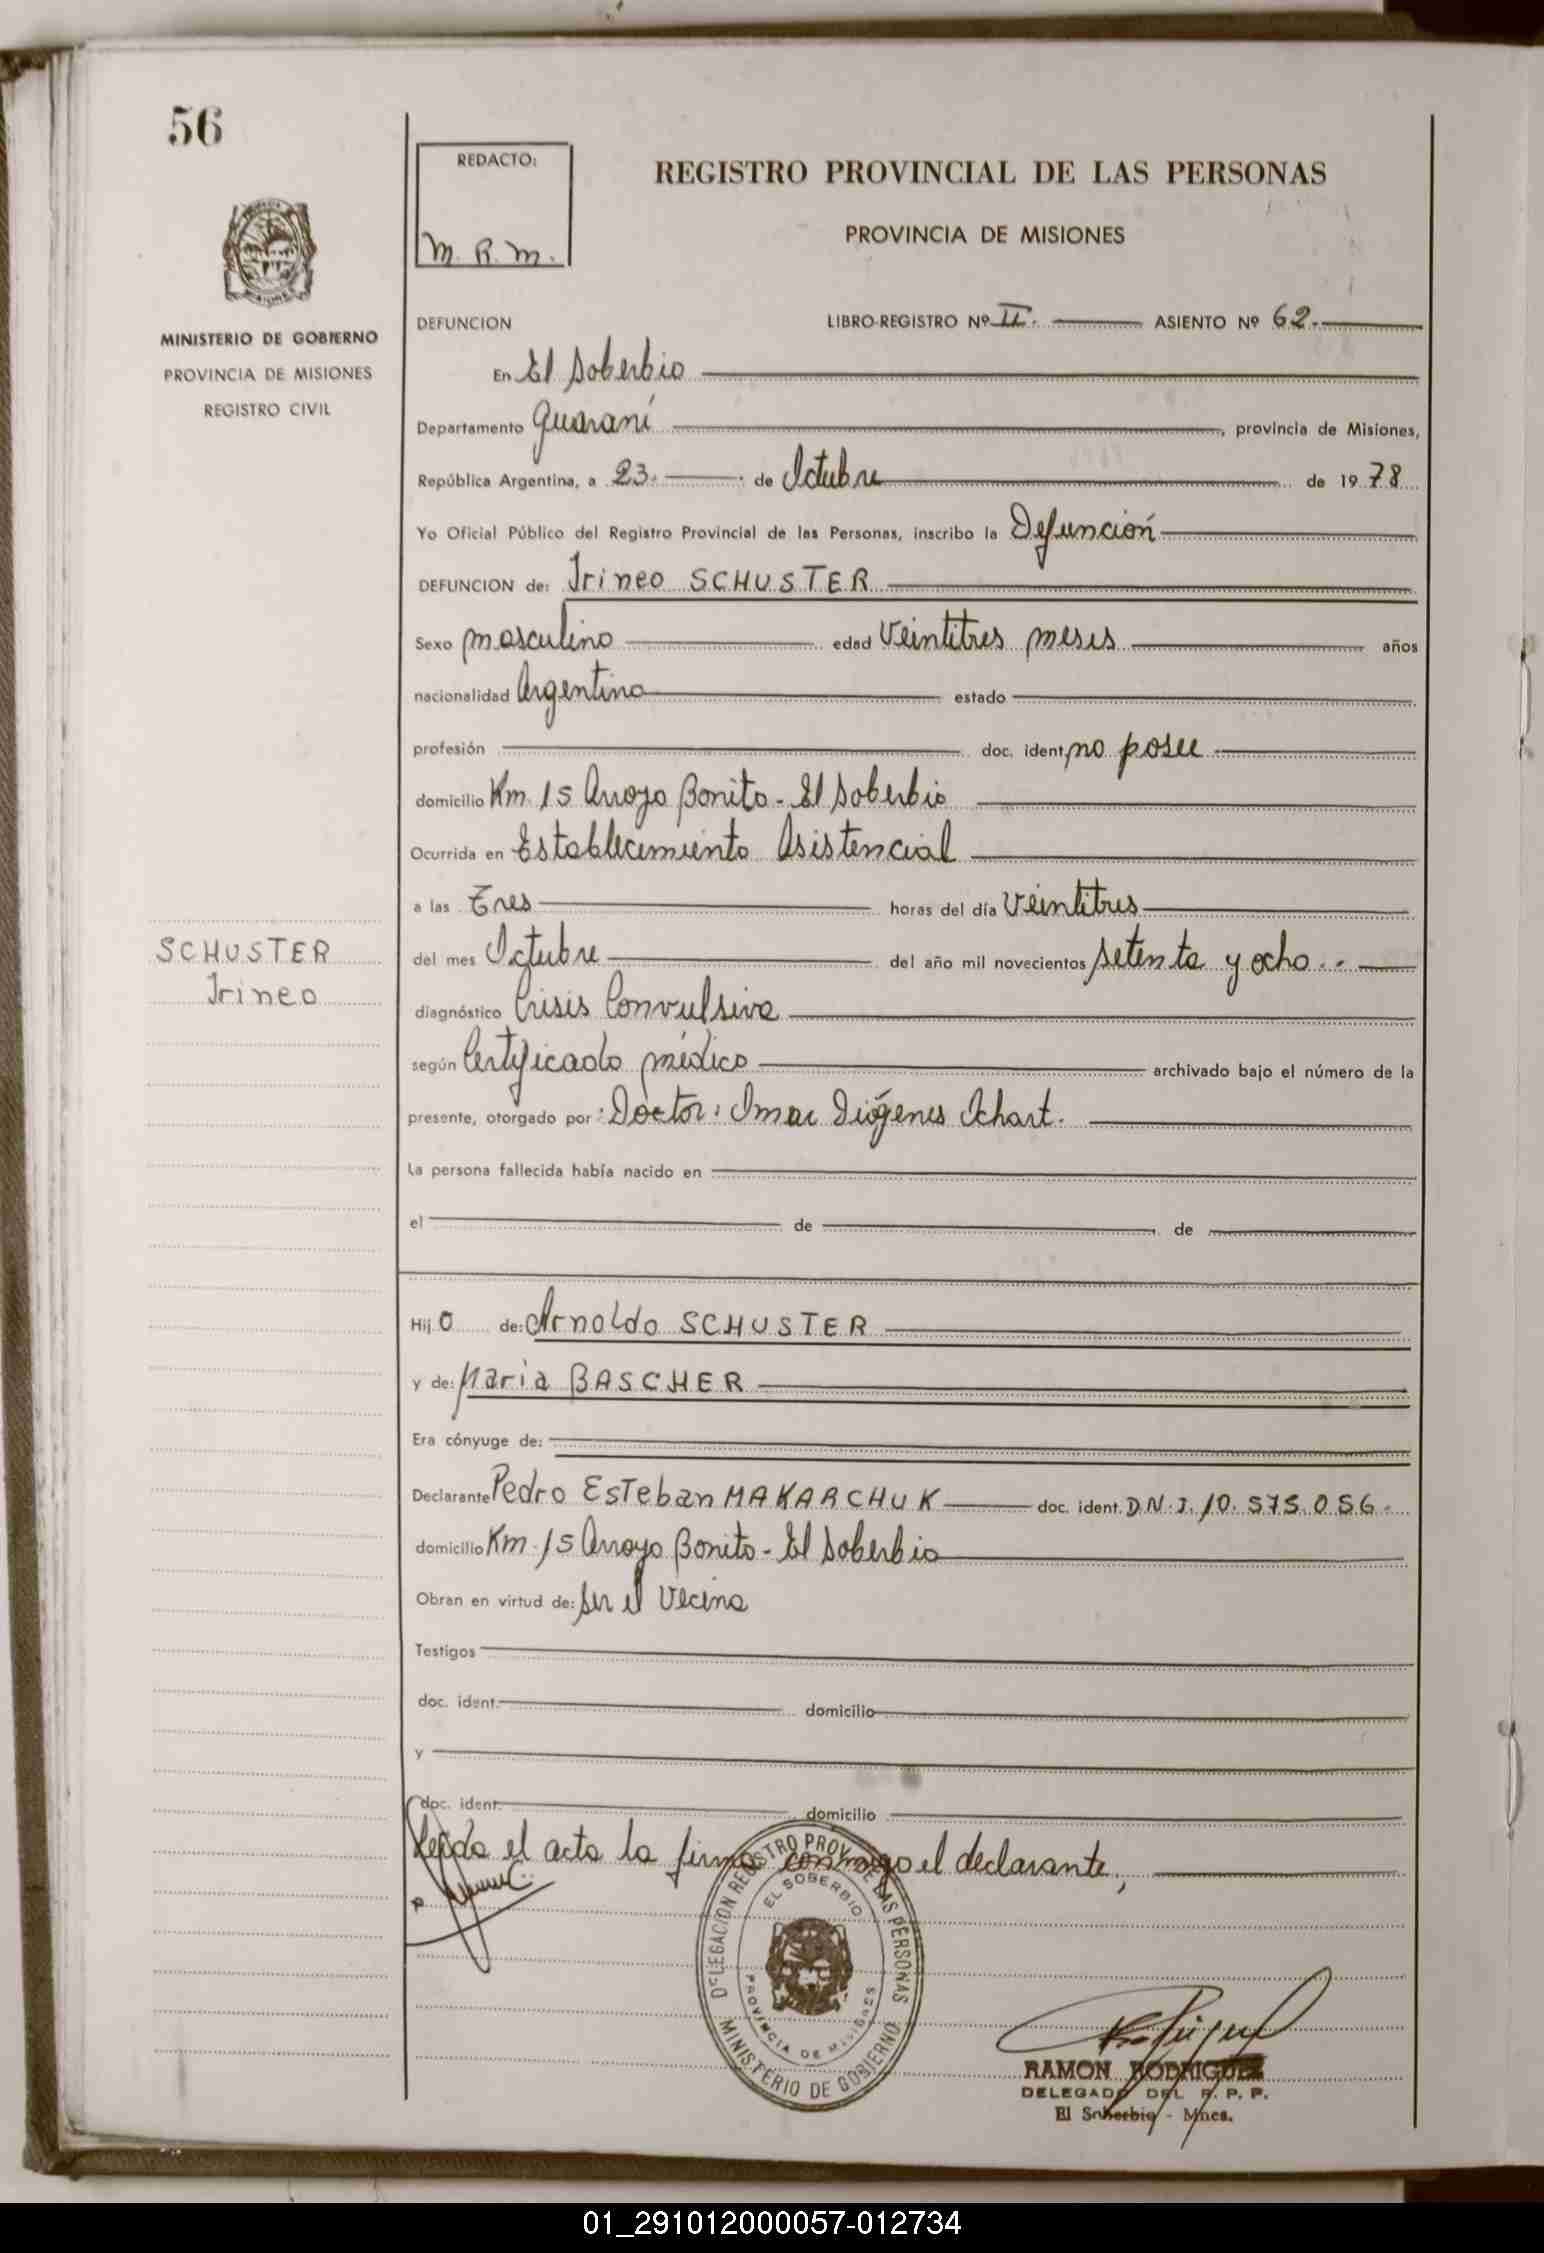 56
REDACTO:
M. R. M.
REGISTRO PROVINCIAL DE LAS PERSONAS
PROVINCIA DE MISIONES
MINISTERIO DE GOBIERNO
PROVINCIA DE MISIONES
REGISTRO CIVIL
DEFUNCION LIBRO-REGISTRO Nº II. ASIENTO Nº 62.
En El Soberbio
Departamento Guaraní, provincia de Misiones,
República Argentina, a 23. de Octubre de 1978
Yo Oficial Público del Registro Provincial de las Personas, inscribo la Defunción
DEFUNCION de: Irineo SCHUSTER
Sexo masculino edad Veintitres meses años
nacionalidad Argentino estado
profesión doc. ident. no posee
domicilio Km. 15 Arroyo Bonito - El Soberbio
Ocurrida en Establecimiento Asistencial
a las Tres horas del día Veintitres
SCHUSTER
Irineo
del mes Octubre del año mil novecientos setenta y ocho..
diagnóstico Crisis Convulsiva
según Certificado médico archivado bajo el número de la
presente, otorgado por: Doctor: Omar Diógenes Ochart.
La persona fallecida había nacido en
el de de
Hijo de: Arnoldo SCHUSTER
y de: Maria BASCHER
Era cónyuge de:
Declarante Pedro Esteban MAKARCHUK doc. ident. D.N.I. 10.575.056.
domicilio Km. 15 Arroyo Bonito - El Soberbio
Obran en virtud de: ser el Vecino
Testigos
doc. ident. domicilio
y
doc. ident. domicilio
Leída el acta la firma conmigo el declarante,
DELEGACION REGISTRO PROV. DE LAS PERSONAS
EL SOBERBIO
PROVINCIA DE MISIONES
MINISTERIO DE GOBIERNO
RAMON RODRIGUEZ
DELEGADO DEL R. P. P.
El Soberbio - Mnes.
01_291012000057-012734